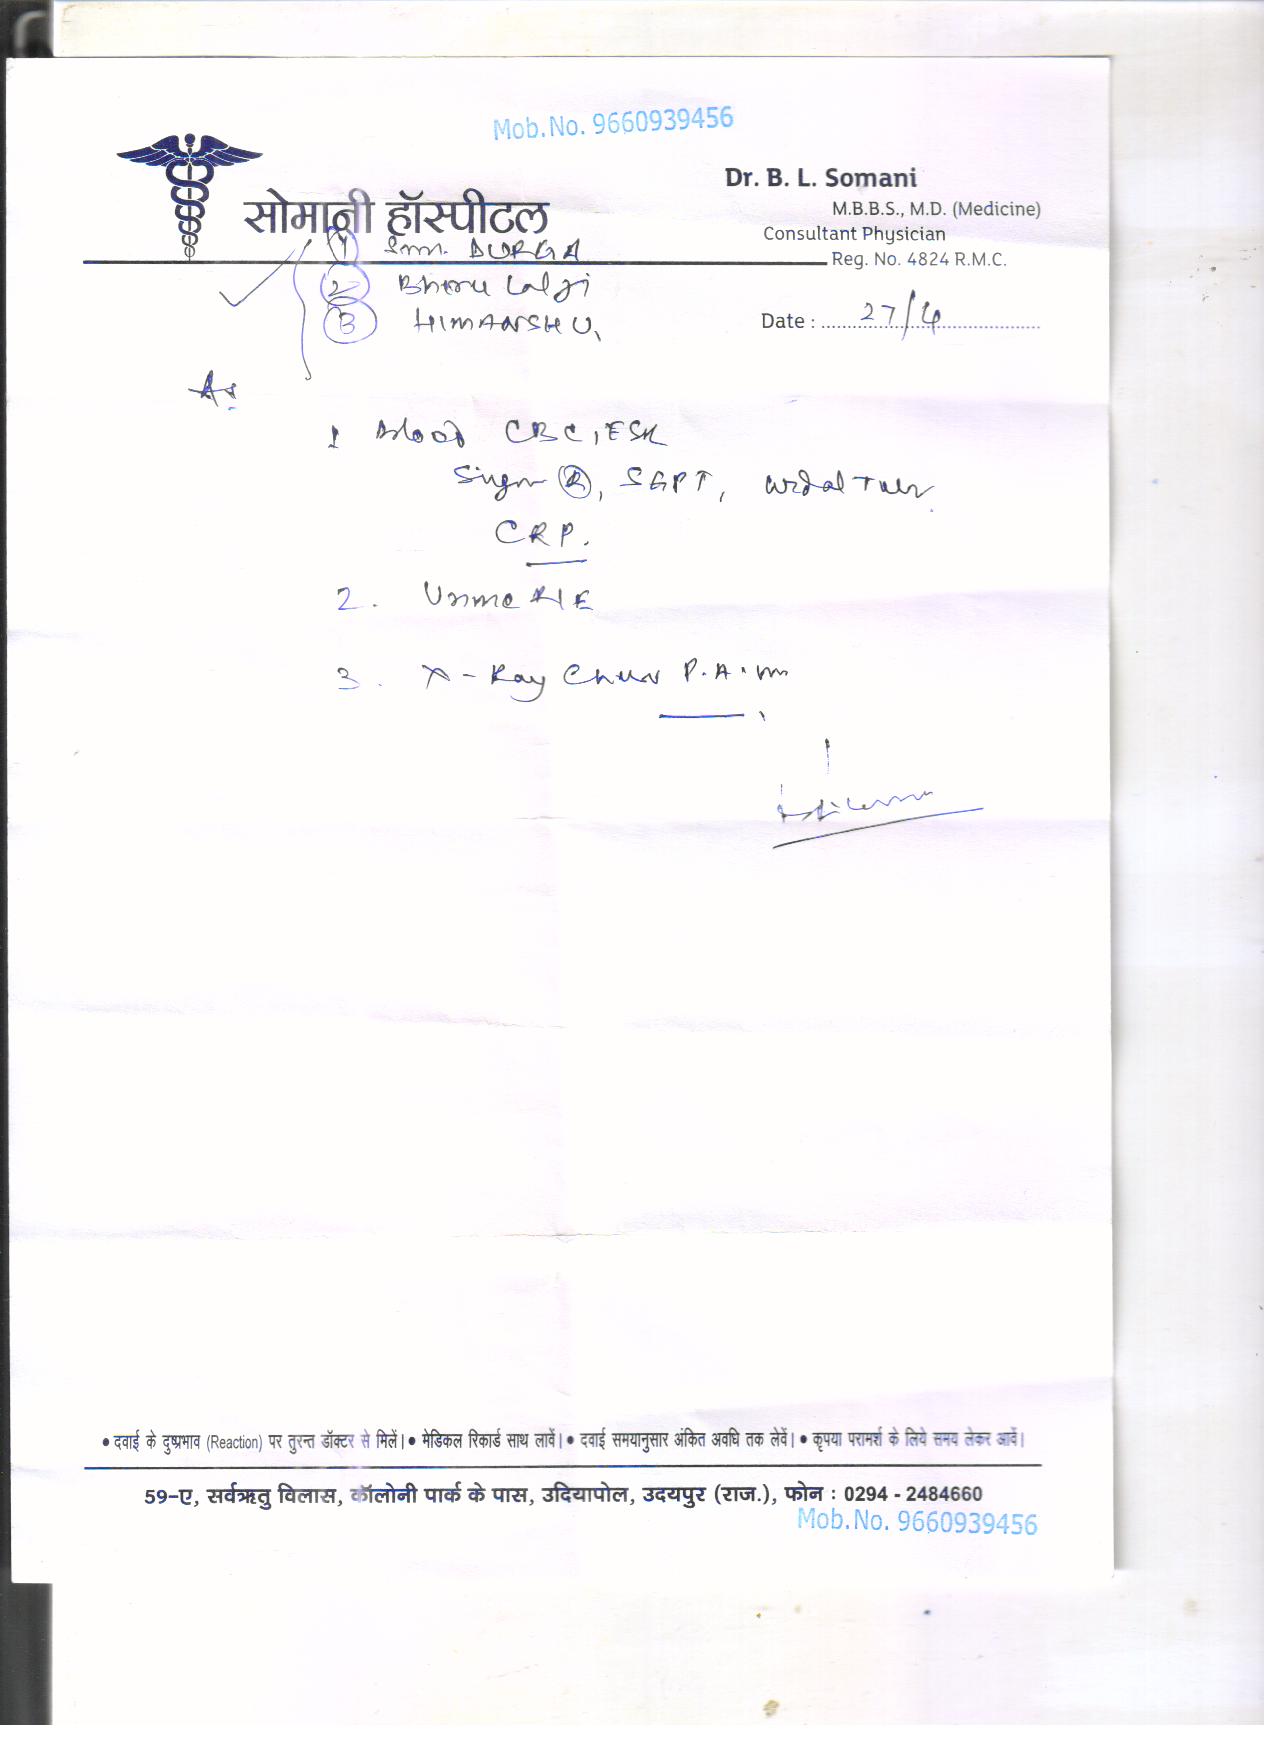 Mob.No. 9660939456
सोमानी हॉस्पीटल
Dr. B. L. Somani
M.B.B.S., M.D. (Medicine)
Consultant Physician
Reg. No. 4824 R.M.C.
1 Smt. DURGA
2 Bheru Lal Ji
3 HIMANSHU
Date : 27/4
1 Blood CBC, ESR
Sugar R, SGPT, Widal Test
CRP.
2. Urine R/E
3. X-Ray Chest P.A.
• दवाई के दुष्प्रभाव (Reaction) पर तुरन्त डॉक्टर से मिलें। • मेडिकल रिकार्ड साथ लावें। • दवाई समयानुसार अंकित अवधि तक लेवें। • कृपया परामर्श के लिये समय लेकर आवें।
59-ए, सर्वऋतु विलास, कॉलोनी पार्क के पास, उदियापोल, उदयपुर (राज.), फोन : 0294 - 2484660
Mob.No. 9660939456